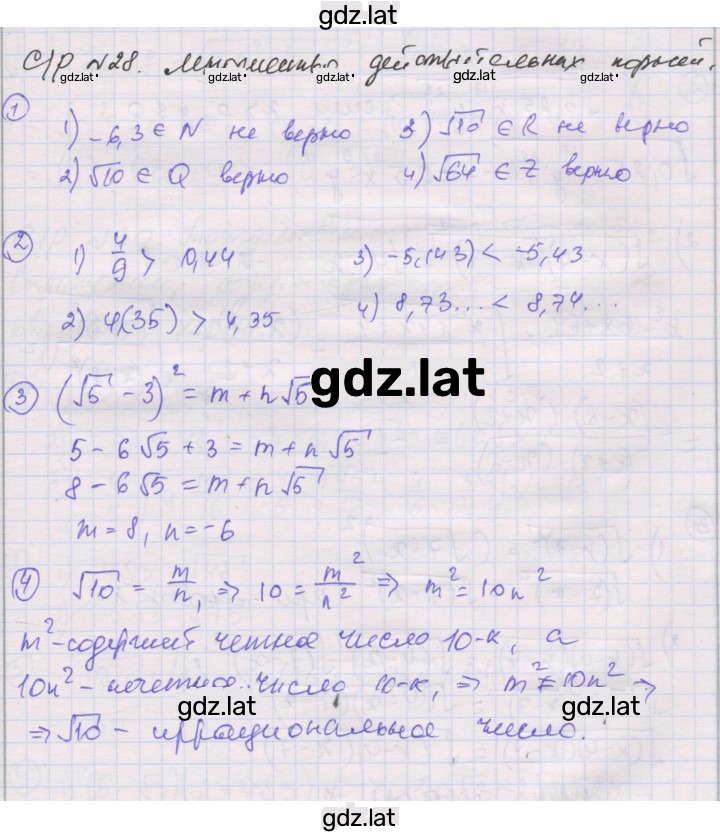 gdz.lat
С/Р №28. Множество действительных чисел.
gdz.lat gdz.lat gdz.lat
1
1) -6,3 ∈ N не верно 3) √10 ∈ R не верно
2) √10 ∈ Q верно 4) √64 ∈ Z верно
2
1) 4/9 > 0,44 3) -5,(43) < -5,43
2) 4(35) > 4,35 4) 8,73... < 8,74...
gdz.lat
3 (√5 - 3)² = m + n√5
5 - 6√5 + 3 = m + n√5
8 - 6√5 = m + n√5
m = 8, n = -6
4 √10 = m/n, ⇒ 10 = m²/n² ⇒ m² = 10n²
m² - содержит четное число 10-к, а
10n² - нечетное число 10-к, ⇒ m² ≠ 10n² ⇒
gdz.lat gdz.lat
⇒ √10 - иррациональное число.
gdz.lat